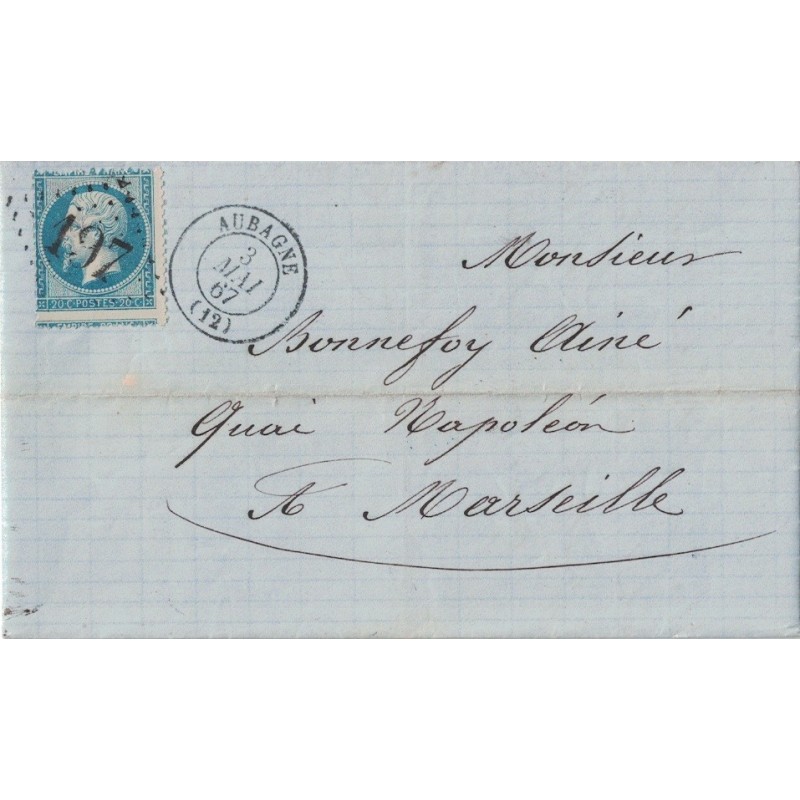 197
20·C·POSTES·20·C
AUBAGNE
3
MAI
67
(12)
Monsieur
Bonnefoy Ainé
Quai Napoléon
A Marseille